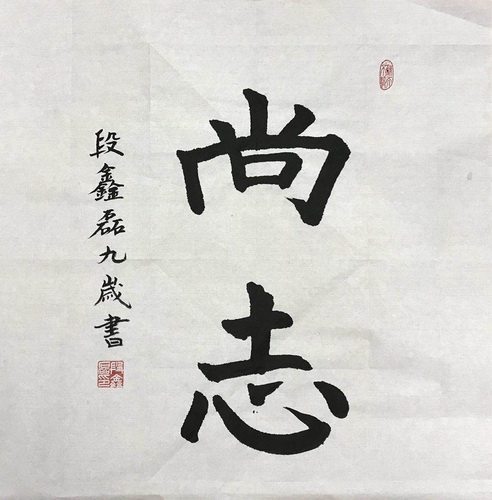 尚志
段鑫磊九歲書